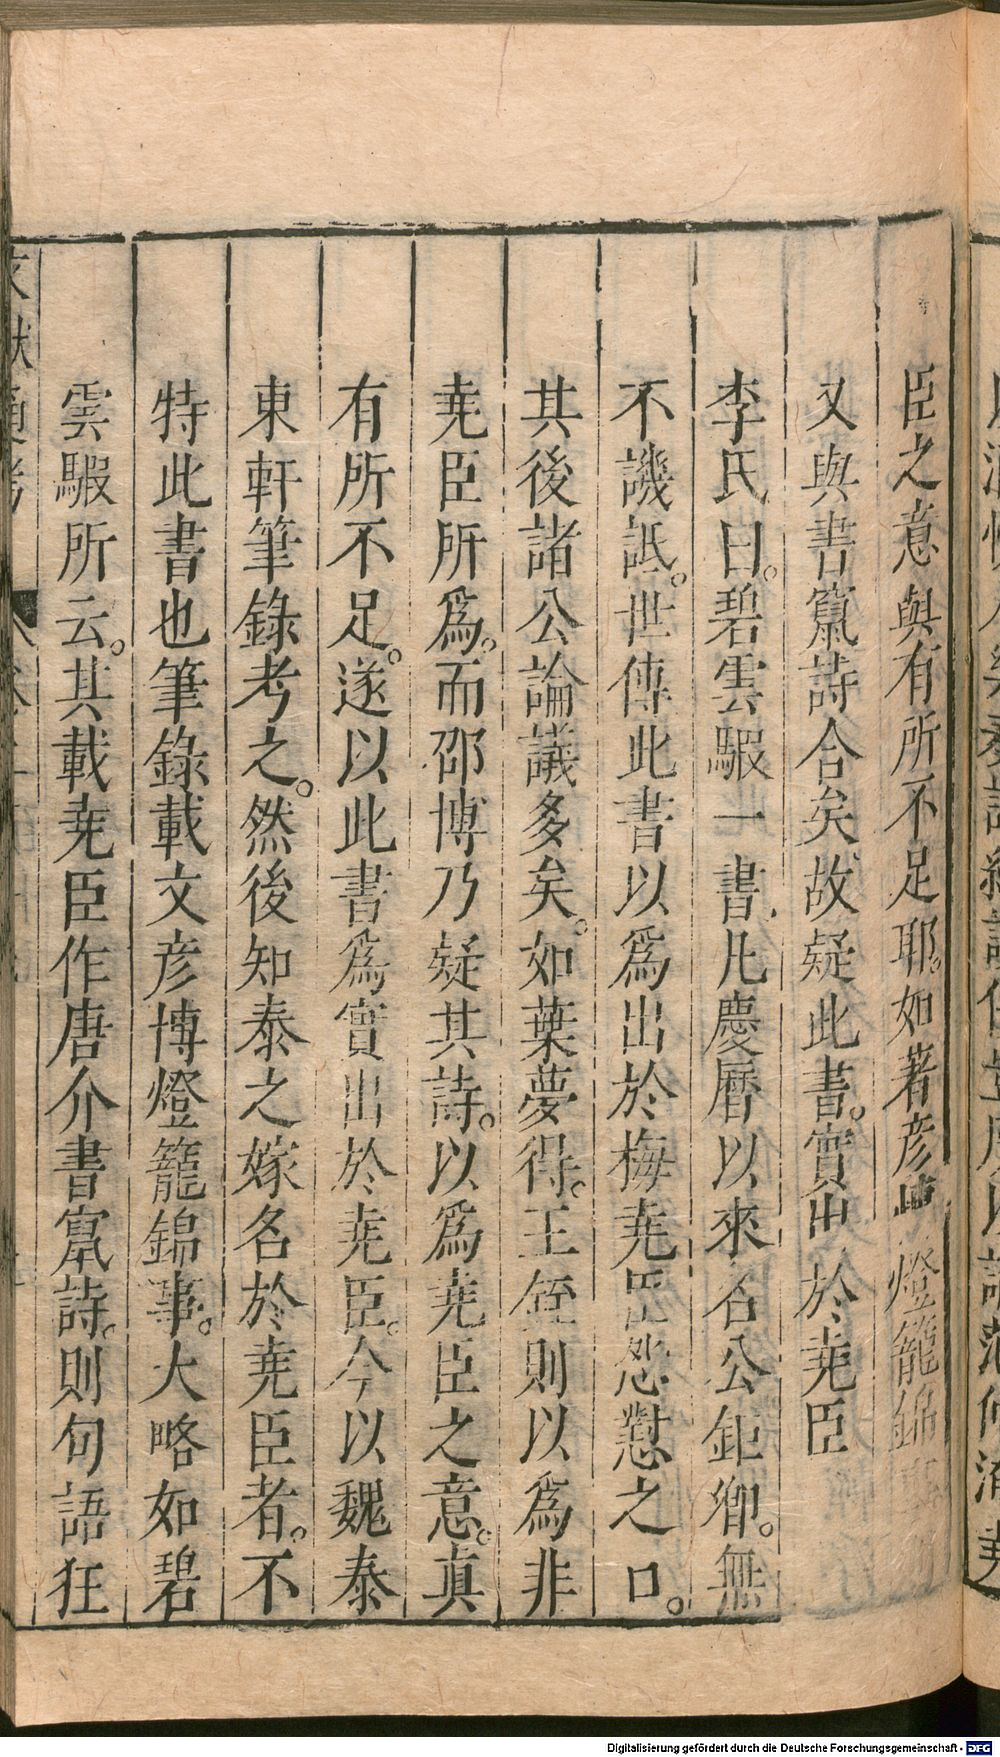 臣之意與有所不足耶。如著彦博燈籠錦
又與書竄詩合矣故疑此書。實出於堯臣
李氏曰。碧雲騢一書凡慶曆以來名公鉅卿。無
不譏詆。世傳此書以爲出於梅堯臣怨懟之口。
其後諸公論議多矣。如葉夢得。王銍則以爲非
堯臣所爲。而邵博乃疑其詩。以爲堯臣之意。真
有所不足。遂以此書爲實出於堯臣。今以魏泰
東軒筆錄考之。然後知泰之嫁名於堯臣者。不
特此書也筆錄載文彦博燈籠錦事。大略如碧
雲騢所云。其載堯臣作唐介書竄詩。則句語狂
文獻通考
Digitalisierung gefördert durch die Deutsche Forschungsgemeinschaft - DFG